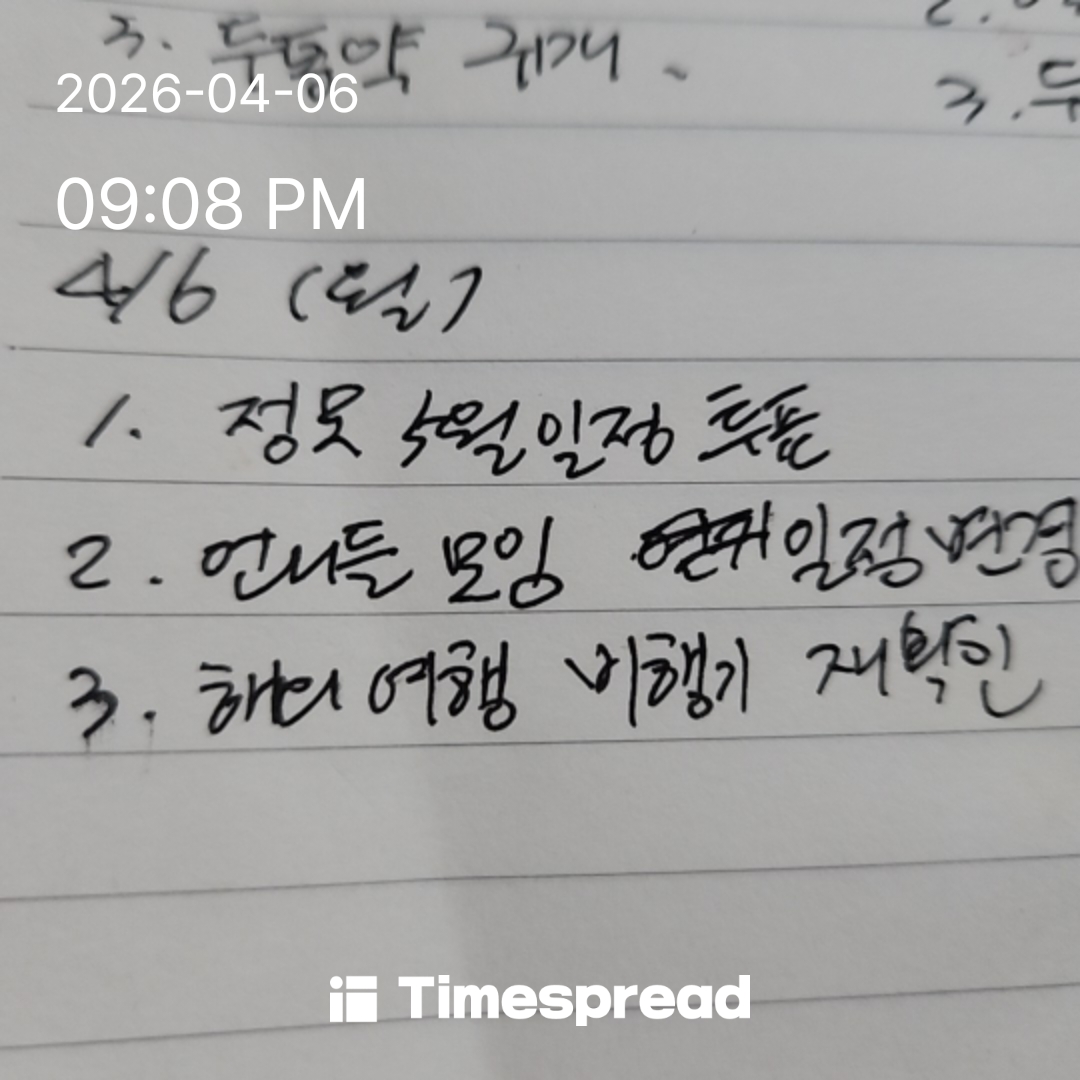 3. 두통약
2.
3. 두
2026-04-06
09:08 PM
4/6 (월)
1. 정모 5월 일정 투표
2. 언니들 모임 일정 변경
3. 해외 여행 비행기 재확인
Timespread